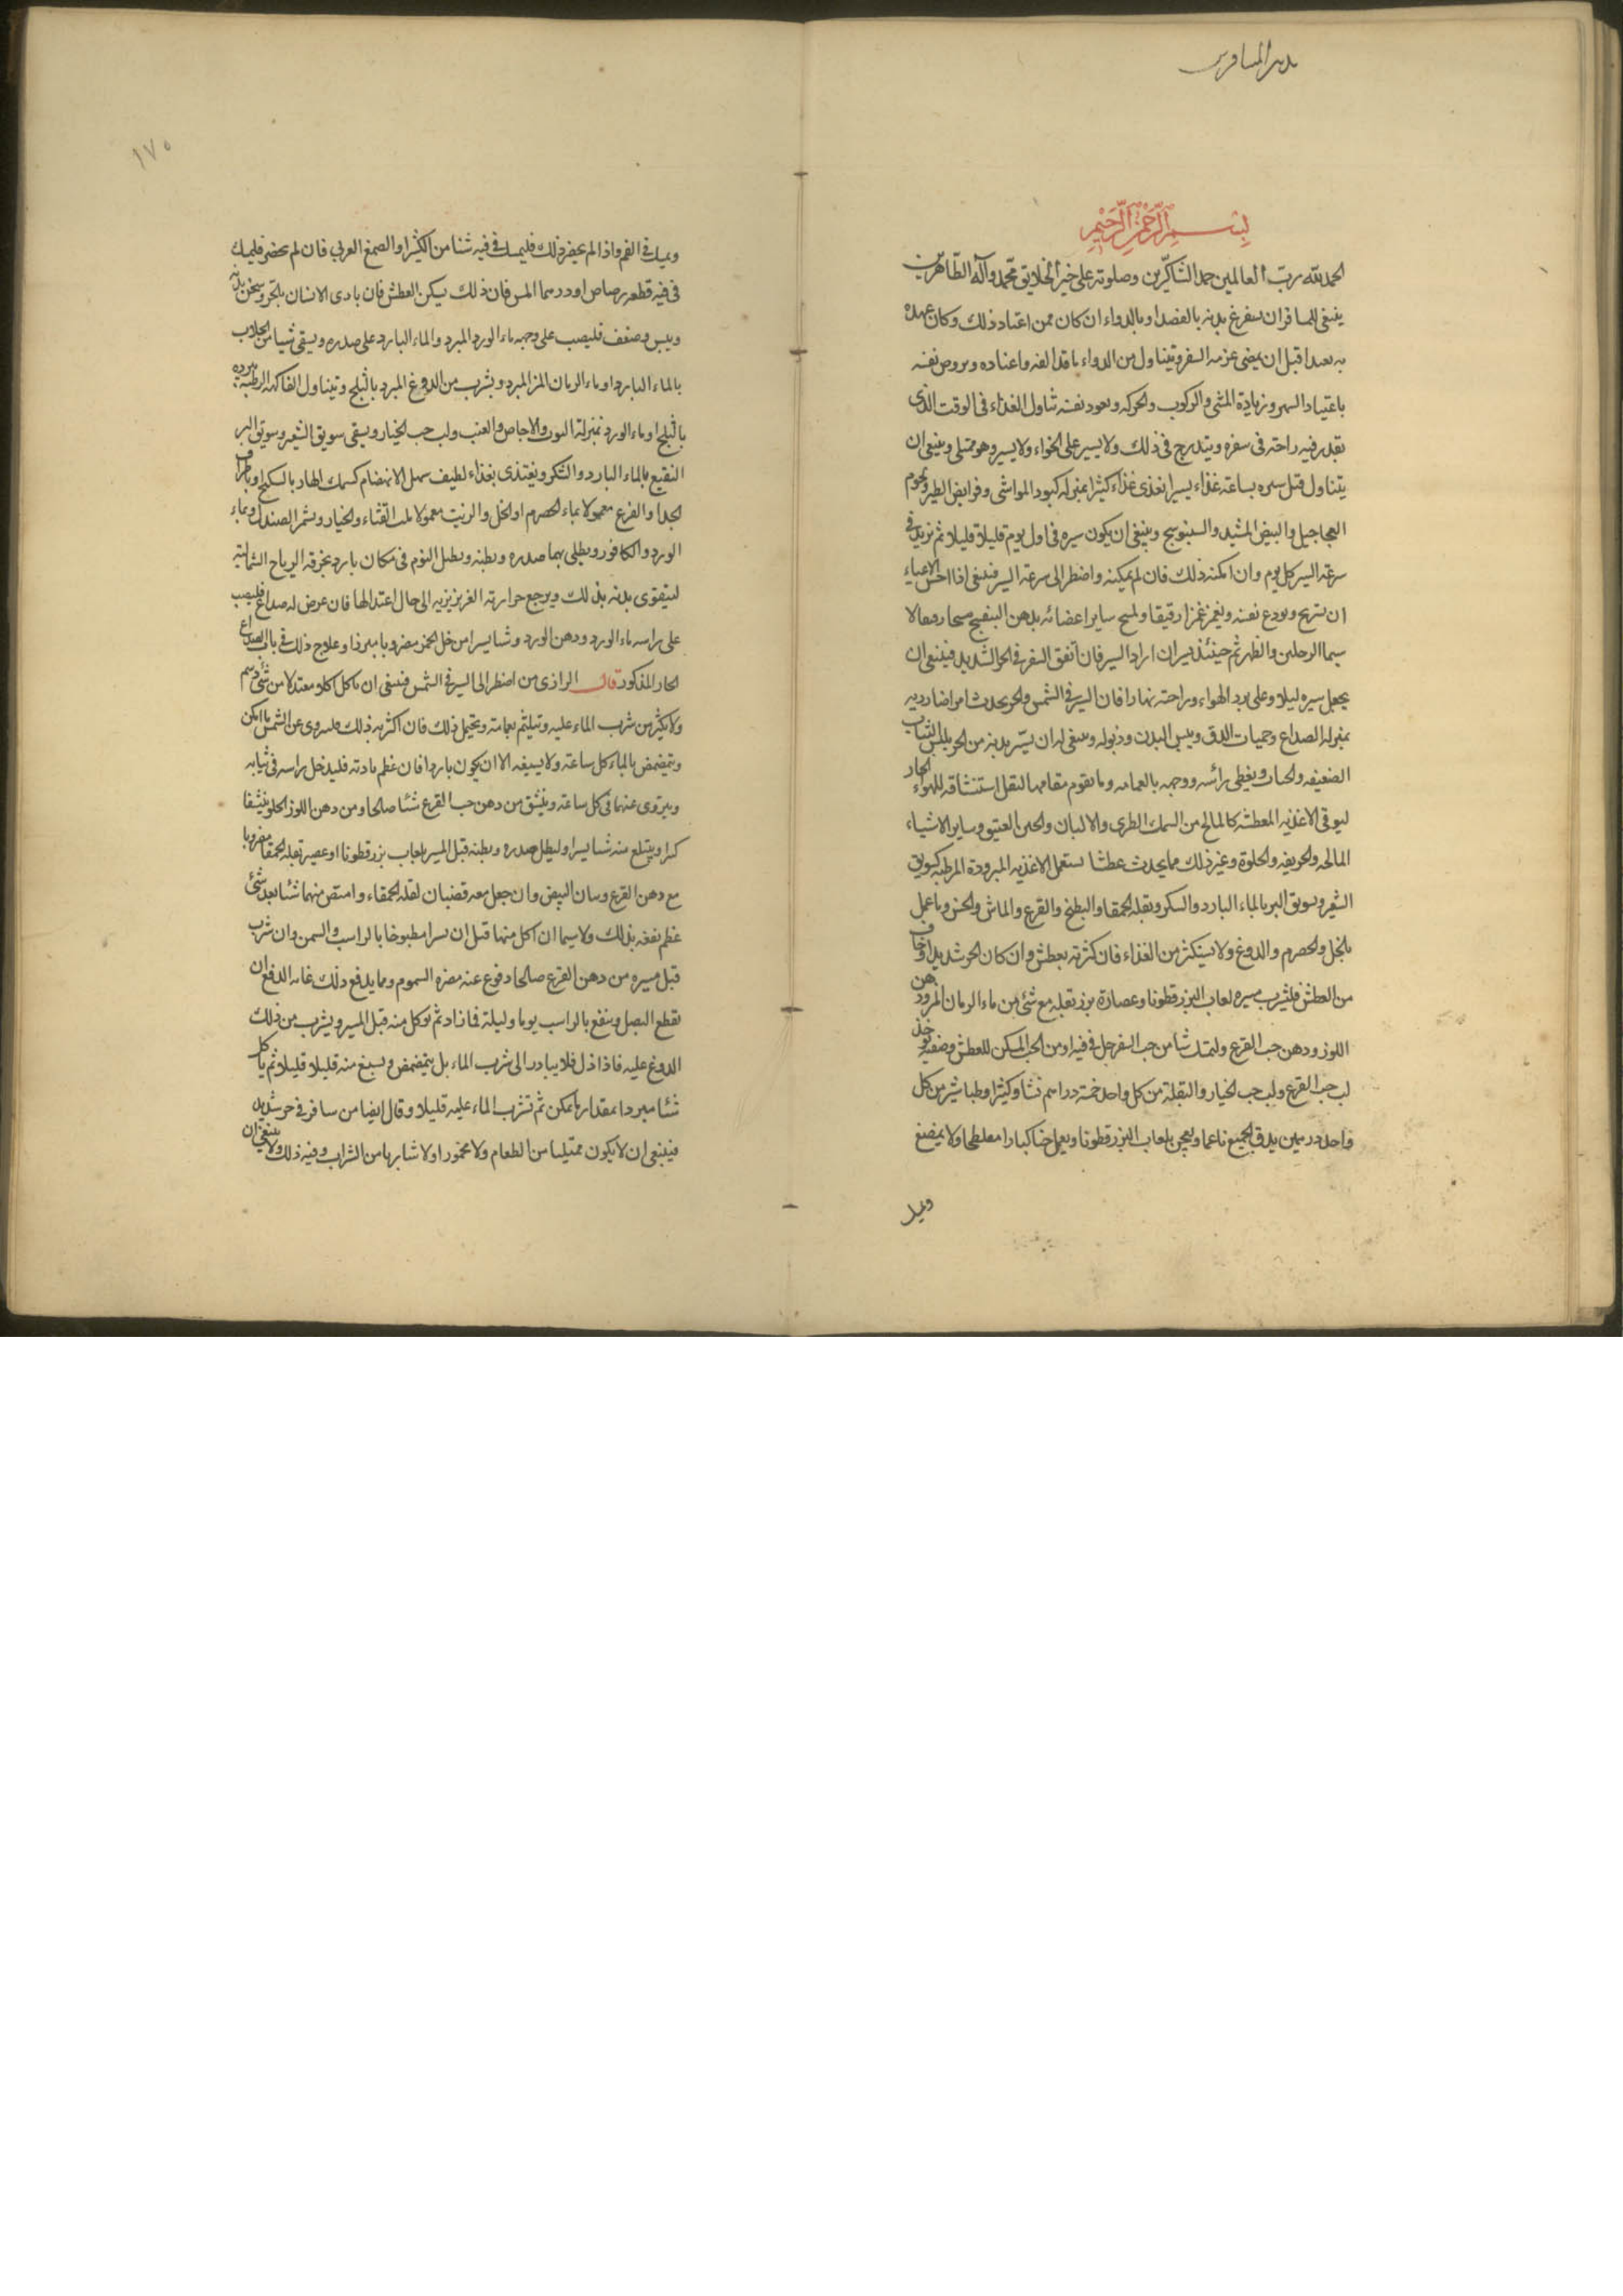 تدبير المسافرين
بسم الله الرحمن الرحيم
الحمد لله رب العالمين حمد الشاكرين وصلوته على خير الخلايق محمد وآله الطاهرين
ينبغى للمسافر ان يستفرغ بدنه بالفصد او بالدواء ان كان ممن اعتاد ذلك وكان عهده
به بعيدا قبل ان يمضى عزمه السفر ويتناول من الدواء ما قد الفه واعتاده ويروض نفسه
باعتياد السهر وزيادة المشى والركوب والحركه ويعود نفسه تناول الغذاء فى الوقت الذى
يقدر فيه راحته فى سفره ويتدرج فى ذلك ولا يسير على الخواء ولا يسير وهو ممتلى وينبغى ان
يتناول قبل سيره بساعة غذاء يسيرا يغذى غذاء كثيرا بمنزله كبود المواشى وفرابض الطير ولحوم
العجاجيل والبيض وينبغى ان يكون سيره فى اول يوم قليلا قليلا ثم يزيد فى
سرعة السير كل يوم وان امكنه ذلك فان لم يمكنه واضطر الى سرعة السير فينبغى اذا احس الاعياء
ان يستريح ويودع نفسه ويغمز غمزا رقيقا ويمسح ساير اعضائه بدهن البنفسج مسحا
سيما الرجلين والظهر ثم حينئذ يسير ان اراد السير فان اتفق السفر فى الحر الشديد فينبغى ان
يجعل سيره ليلا وعلى برد الهواء وراحته نهارا فان السير فى الشمس والحر يحدث امراضا رديه
بمنزله الصداع وحميات الدق ويبس البدن وذبوله وينبغى له ان يستر بدنه من الحر بلبس الثياب
الضعيفه ويغطى راسه ووجهه بالعمامه وما يقوم مقامها ليقل استنشاقه للهواء الحار
ليوقى الاغذيه المعطشه كالمالح من السمك الطرى والالبان والجبن العتيق وساير الاشياء
المالحه والحريفه والحلوة وغير ذلك مما يحدث عطشا يستعمل الاغذيه المبردة المرطبه كسويق
الشعير وسويق البر بالماء البارد والسكر وبقله الحمقا والبطيخ والقرع والماش والخس وما عمل
بالخل والحصرم والدوغ ولا يستكثر من الغذاء فان كثرته يعطش وان كان الحر شديدا وخاف
من العطش فليشرب مسيره لعاب البزر قطونا وعصارة بزر بقله مع شئ من ماء الرمان المز ودهن
اللوز ودهن حب القرع وليمسك شيا من حب السفرجل فى فيه او من الحب المسكن للعطش وصفته يوخذ
لب حب القرع ولب حب الخيار والبقلة من كل واحد خمسة دراهم نشا وكثيرا وطباشير من كل
واحد درهمين يدق الجميع ناعما ويعجن بلعاب البزر قطونا ويعمل حبا كبارا مفلطحا ولا يمضغ
ويمسك
١٧٥
ويمسك فى الفم واذا لم يحضر ذلك فليمسك فى فيه شيا من الكثيرا والصمغ العربى فان لم يحضر فليمسك
فى فيه قطعه رصاص او درهما املس فان ذلك يسكن العطش فان تاذى الانسان بالحر وسخن بدنه
ويبس وضعف فليصب على وجهه ماء الورد المبرد والماء البارد على صدره ويسقى شيا من الجلاب
بالماء البارد او ماء الرمان المز المبرد ويشرب من الدوغ المبرد بالثلج ويتناول الفاكهه الرطبه مبرده
بالثلج او ماء الورد بمنزلة التوت والاجاص والعنب ولب حب الخيار ويسقى سويق الشعير وسويق البر
النقيع بالماء البارد والسكر ويغتذى بغذاء لطيف سهل الانهضام كسمك بالسكباج او باطراف
الجدا والقرع معمولا بماء الحصرم او الخل والزيت معمولا بلب القثاء والخيار ويشم الصندل وبماء
الورد والكافور ويطلى بهما صدره وبطنه ويطيل النوم فى مكان بارد يخرقه الرياح الشماليه
ليتقوى بدنه بذلك ويرجع حرارته الغريزيه الى حال اعتدالها فان عرض له صداع فليصب
على راسه ماء الورد ودهن الورد وشيا يسيرا من خل الخمر مضروبا مبردا وعلاج ذلك فى باب الصداع
الحار المذكور قال الرازى من اضطر الى السير فى الشمس فينبغى ان ياكل اكلا معتدلا من شئ دسم
ولا يكثر من شرب الماء عليه ويتلثم بعمامته ويتحيل ذلك فان اكثر به ذلك عن الشمس ما امكن
ويتمضمض بالماء كل ساعة ولا يسيغه الا ان يكون باردا فان عظم مادته فليدخل راسه فى ثيابه
ويتروى عنهما فى كل ساعة وينشق من دهن حب القرع شيئا صالحا ومن دهن اللوز الحلو ينشقا
كثيرا ويبتلع منه شيا يسيرا وليطل صدره وبطنه قبل المسير بلعاب بزر قطونا او عصير بقله الحمقا مضروبا
مع دهن القرع وبياض البيض وان جعل معه قضبان بقله الحمقاء وامتص منهما شيئا بعد شئ
عظم نفعه بذلك ولا سيما ان اكل منهما قبل ان مطبوخا بالرايب والسمن وان شرب
قبل مسيره من دهن القرع صالحا دفع عنه مضره السموم ومما يدفع ذلك غايه الدفع ان
يقطع البصل وينقع بالرايب يوما وليلة فما زاد ثم يوكل منه قبل المسير ويشرب من ذلك
الدوغ عليه فاذا نزل فلا يبادر الى شرب الماء بل يتمضمض ويسيغ منه قليلا قليلا ثم ياكل
شيئا مبردا بمقدار ما يمكن ثم يشرب الماء عليه قليلا وقال ايضا من سافر فى حر شديد
فينبغى ان لا يكون ممتليا من الطعام ولا مخمورا ولا شاربا من الشراب وفيه ذلك ولا ينبغى ان